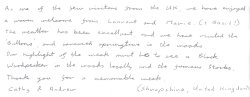 As one of the few visitors from the UK, we have enjoyed
a warm welcome from Lennart and Marie. (& Basil!)
The weather has been excellent and we have visited the
and swimming in the woods
Our highlight of the week must be to see a Black
Woodpecker in the woods locally and the famous Storks.
Thank you for a memorable week
Cathy & Andrew (Shropshire, United Kingdom)